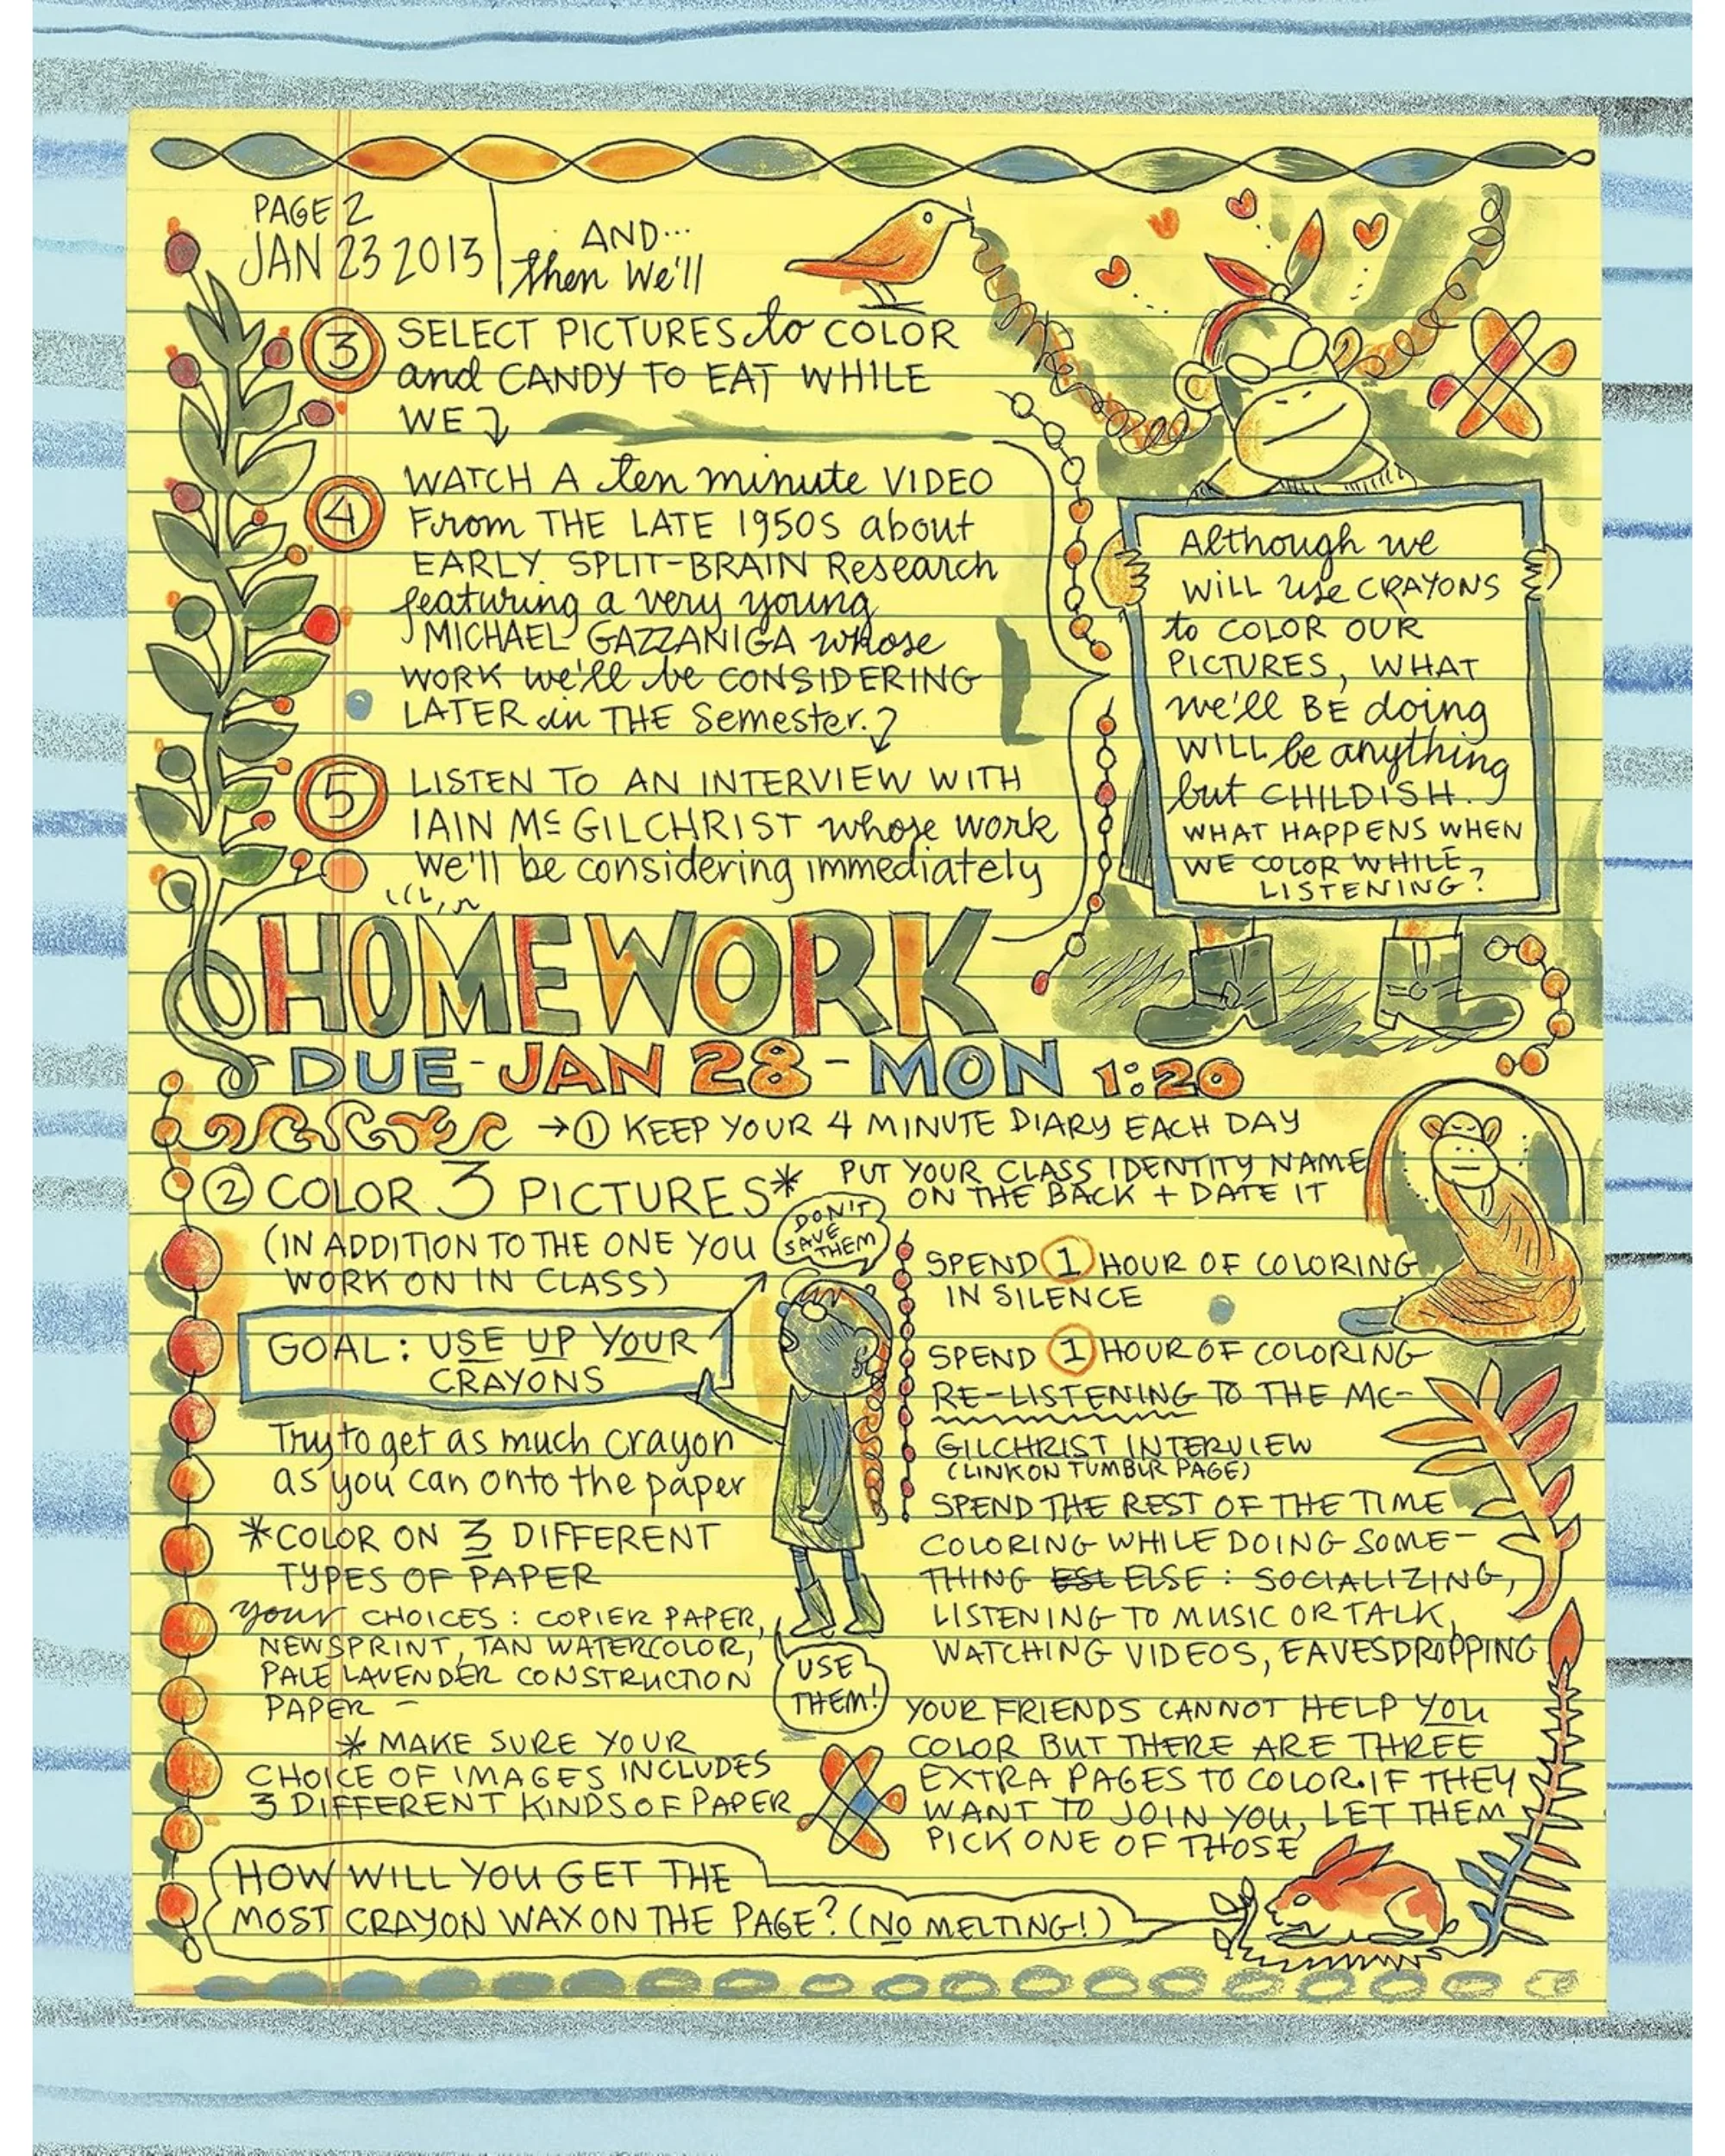 PAGE 2
JAN 23 2013
AND...
then We'll
3 SELECT PICTURES to COLOR
and CANDY TO EAT WHILE
WE
4 WATCH A ten minute VIDEO
From THE LATE 1950S about
EARLY SPLIT-BRAIN Research
featuring a very young
MICHAEL GAZZANIGA whose
WORK we'll be CONSIDERING
LATER in THE Semester.
5 LISTEN TO AN INTERVIEW WITH
IAIN McGILCHRIST whose work
We'll be considering immediately
Although we
WILL use CRAYONS
to COLOR OUR
PICTURES, WHAT
we'll BE doing
WILL be anything
but CHILDISH.
WHAT HAPPENS WHEN
WE COLOR WHILE
LISTENING?
HOMEWORK
DUE-JAN 28-MON 1:20
→① KEEP YOUR 4 MINUTE DIARY EACH DAY
② COLOR 3 PICTURES*
PUT YOUR CLASS IDENTITY NAME
ON THE BACK + DATE IT
(IN ADDITION TO THE ONE YOU
WORK ON IN CLASS)
DON'T
SAVE
THEM
GOAL: USE UP YOUR
CRAYONS
Try to get as much crayon
as you can onto the paper
*COLOR ON 3 DIFFERENT
TYPES OF PAPER
your CHOICES: COPIER PAPER,
NEWSPRINT, TAN WATERCOLOR,
PALE LAVENDER CONSTRUCTION
PAPER -
* MAKE SURE YOUR
CHOICE OF IMAGES INCLUDES
3 DIFFERENT KINDS OF PAPER
USE
THEM!
SPEND 1 HOUR OF COLORING
IN SILENCE
SPEND 1 HOUR OF COLORING
RE-LISTENING TO THE MC-
GILCHRIST INTERVIEW
(LINK ON TUMBLR PAGE)
SPEND THE REST OF THE TIME
COLORING WHILE DOING SOME-
THING ESL ELSE: SOCIALIZING,
LISTENING TO MUSIC OR TALK,
WATCHING VIDEOS, EAVESDROPPING
YOUR FRIENDS CANNOT HELP YOU
COLOR BUT THERE ARE THREE
EXTRA PAGES TO COLOR. IF THEY
WANT TO JOIN YOU, LET THEM
PICK ONE OF THOSE
HOW WILL YOU GET THE
MOST CRAYON WAX ON THE PAGE? (NO MELTING!)